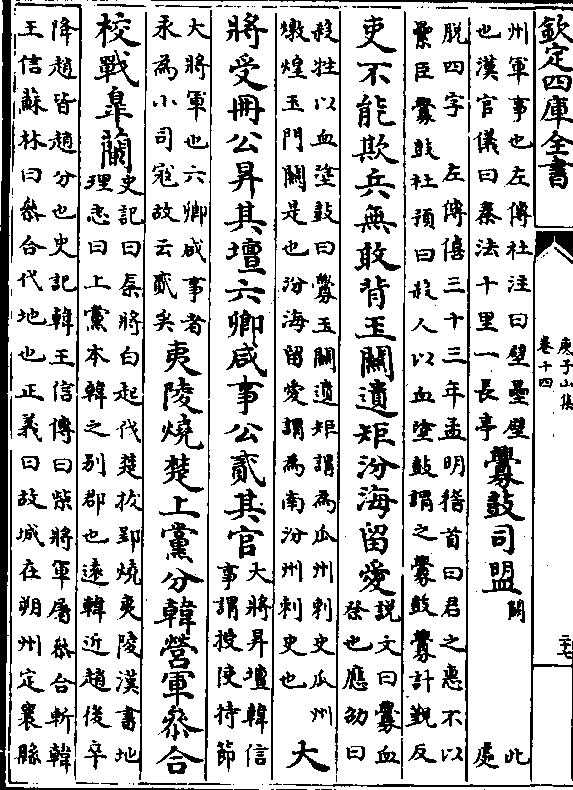 欽定四庫全書
庾子山集
卷十四
二十七
州軍事也左傳杜注曰壁壘壁
也漢官儀曰秦法十里一長亭
釁鼓司盟
闕
此
處
脱四字 左傳僖三十三年孟明稽首曰君之惠不以
纍臣釁鼓杜預曰殺人以血塗鼓謂之釁鼓釁許覲反
吏不能欺兵無敢背玉關遺矩汾海留愛
説文曰釁血
祭也應劭曰
殺牲以血塗鼓曰釁玉關遺矩謂為瓜州刺史瓜州
燉煌玉門關是也汾海留愛謂為南汾州刺史也
大
將受冊公昇其壇六卿咸事公貳其官
大將昇壇韓信
事謂授使持節
大將軍也六卿咸事者
永為小司寇故云貳矣
夷陵燒楚上黨分韓營軍叅合
校戰臯蘭
史記曰秦將白起伐楚拔郢燒夷陵漢書地
理志曰上黨本韓之别郡也遠韓近趙後卒
降趙皆趙分也史記韓王信傳曰柴將軍屠叅合斬韓
王信蘇林曰叅合代地也正義曰故城在朔州定襄縣